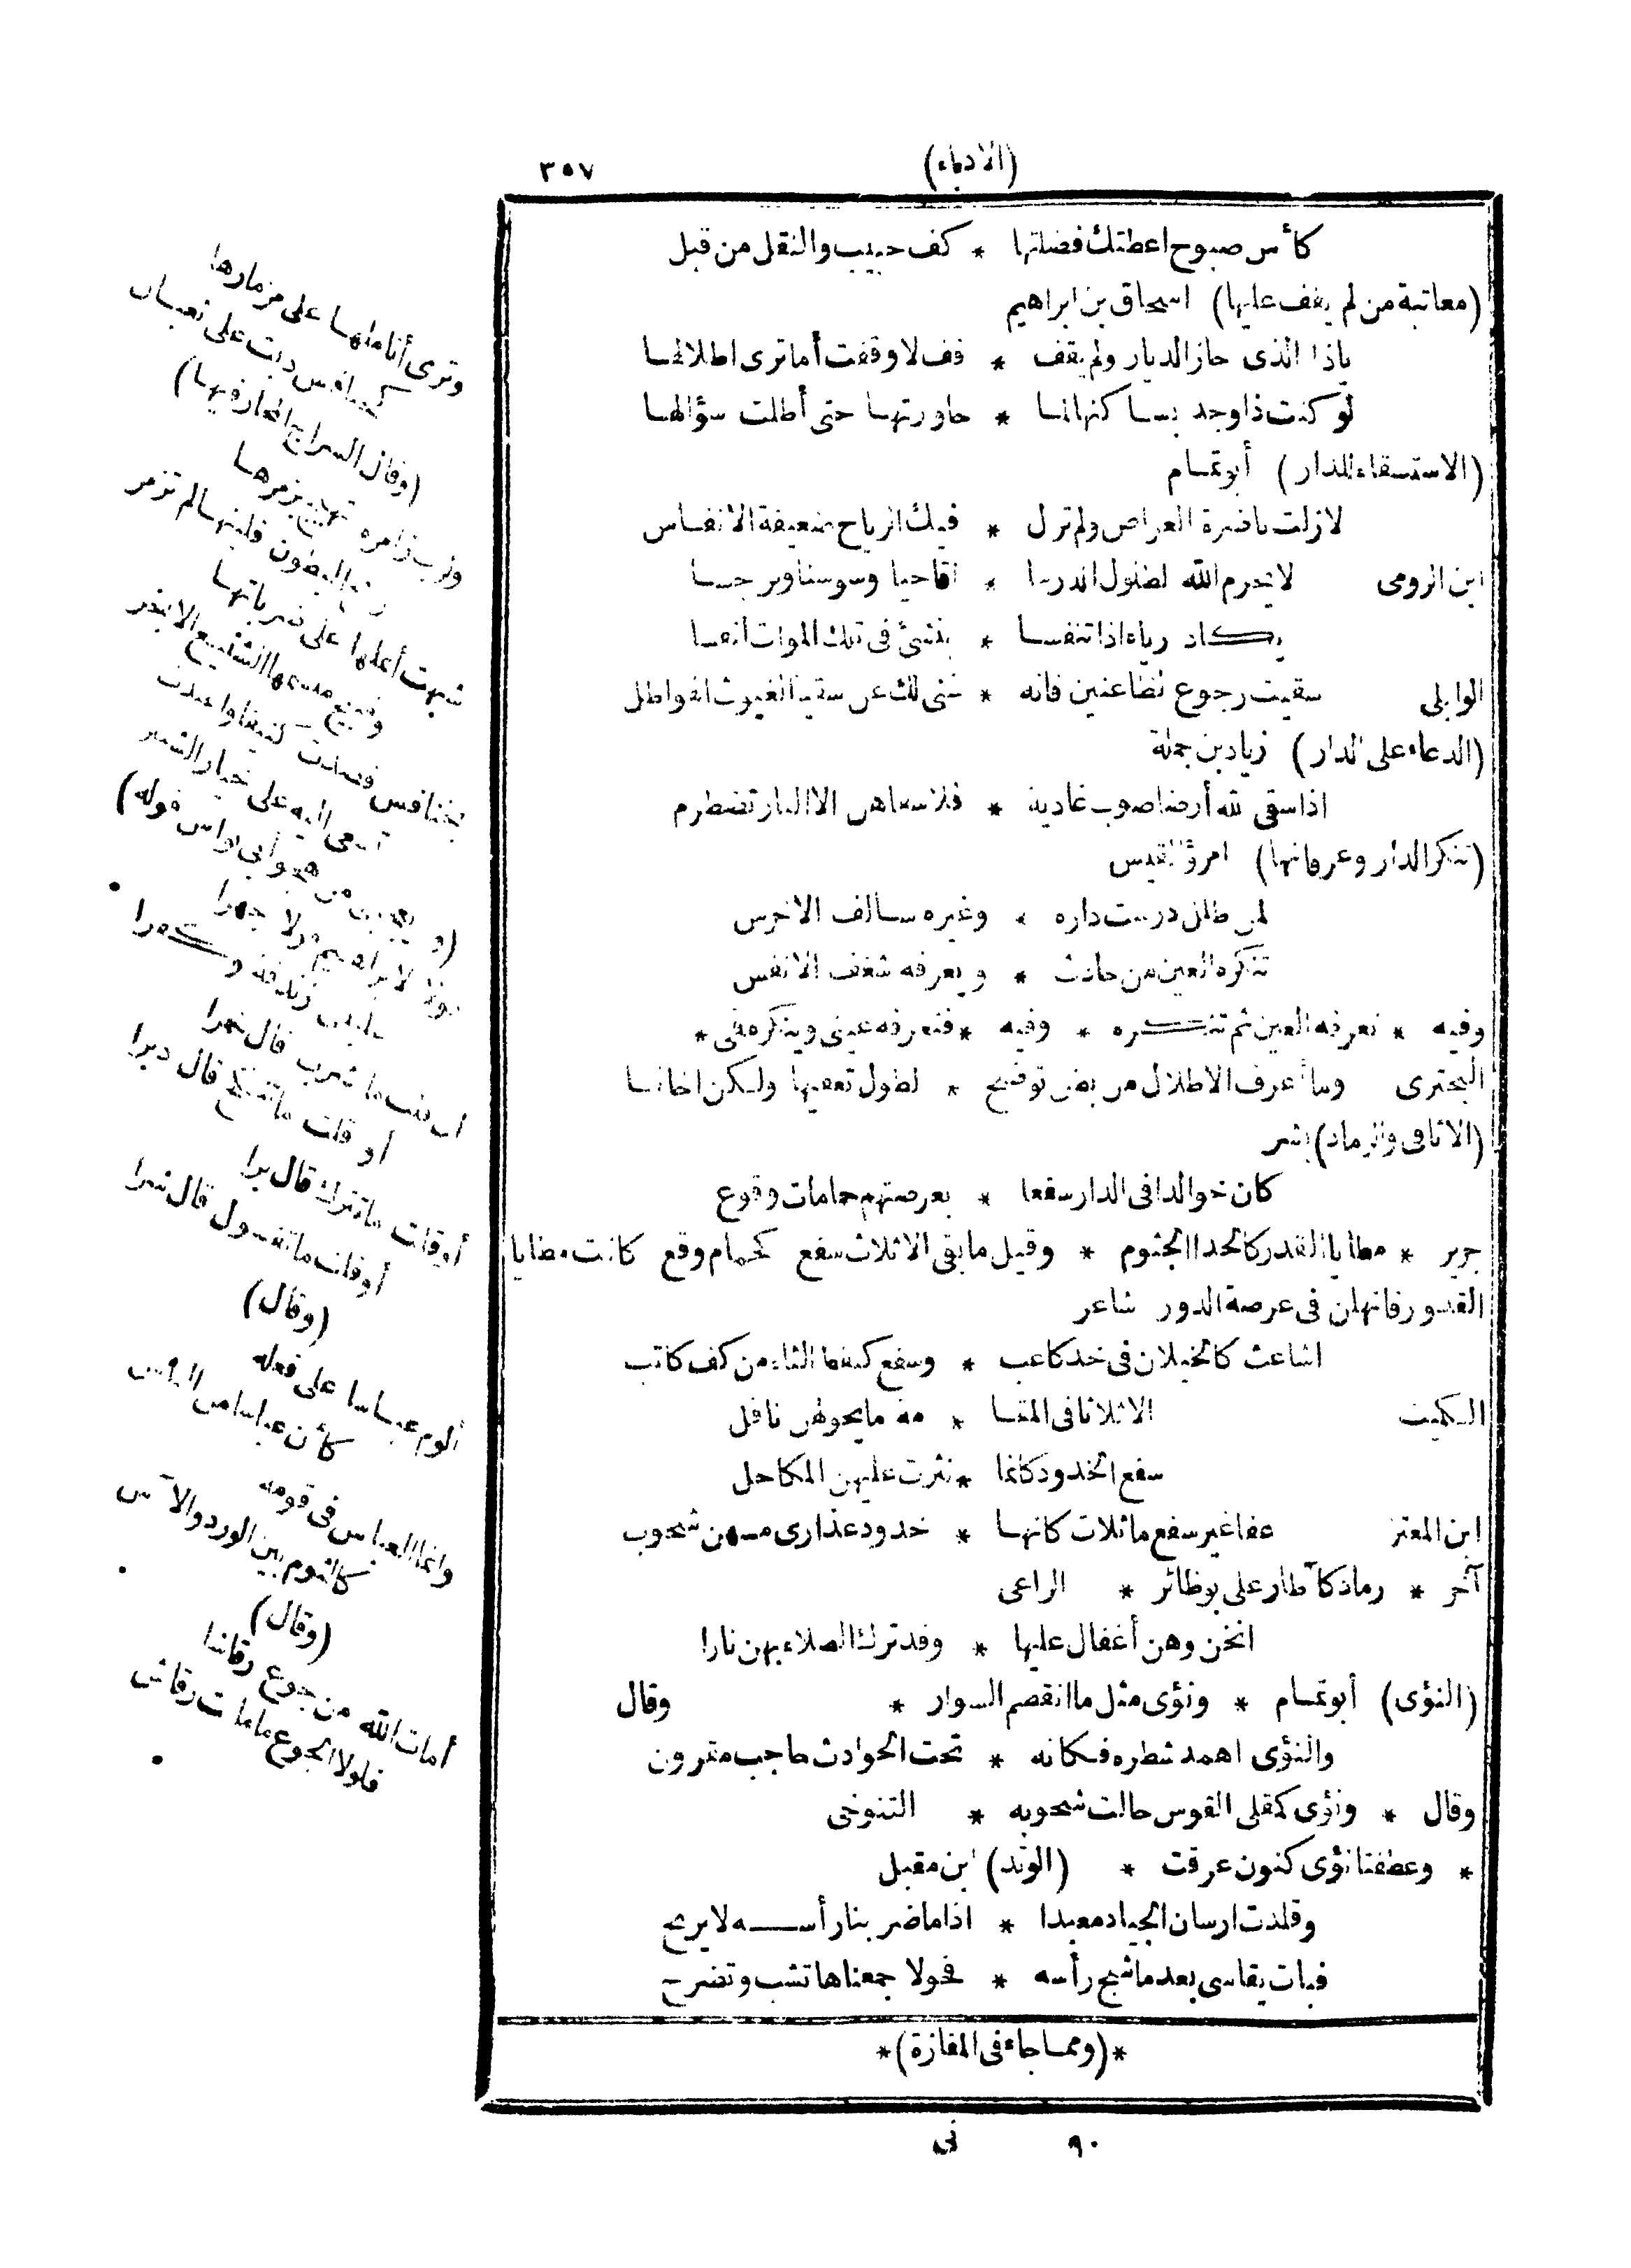 (الادباء)
٣٥٧
كأس صبوح اعطتك فضلتها * كف حبيب والنقل من قبل
(معاتبة من لم يقف عليها) اسحاق بن ابراهيم
ياذا الذى حاز الديار ولم يقف * قف لا وقفت أما ترى اطلالها
لو كنت ذا وجد بساكنها لما * حاورتها حتى أطلت سؤالها
(الاستسقاء للدار) أبو تمام
لا زلت ناضرة العراص ولم تزل * فيك الرياح ضعيفة الانفاس
ابن الرومى لا يحرم الله لطلول الدرسا * اقاحيا وسوسنا ونرجسا
يكاد رياه اذا تنفسا * ينشئ فى تلك الموات أنفسا
الوابلى سقيت رجوع الظاعنين فانه * غنى لك عن سقيا الغيوث الهواطل
(الدعاء على الدار) زياد بن جملة
اذا سقى الله أرضا صوب غادية * فلا سقاهن الا النار تضطرم
(تنكر الدار وعرفانها) امرؤ القيس
لمن طلل درست داره * وغيره سالف الاحرس
تنكره العين من حادث * ويعرفه شغف الانفس
وفيه * تعرفه العين ثم تنكره * وفيه * فتعرفه عينى وينكره *
البحترى وما أعرف الاطلال من توضح * لطول تعفيها ولكن اخالها
(الاثافى والرماد) بشر
كان خوالدا فى الدار سفعا * بعرصتهم حمامات وقوع
جرير * مطايا القدر كالحدا الجثوم * وقيل ما بقى الا ثلاث سفع كحمام وقع كانت مطايا
القدور فانهلن فى عرصة الدور شاعر
اشاعث كالخيلان فى خد كاعب * وسفع كنقط الثاء من كف كاتب
الكميت الا ثلاثا فى المقا * مة ما يحولهن ناقل
سفع الخدود كانما * نثرت عليهن المكاحل
ابن المعتز عفا غير سفع ماثلات كانها * خدود عذارى مسهن شحوب
آخر * رماد كآطار على بو ظائر * الراعى
انخن وهن أغفال عليها * وقد ترك الصلاء بهن نارا
(النؤى) أبو تمام * ونؤى مثل ما انقصم السوار * وقال
والنؤى اهمد شطره فكانه * تحت الحوادث حاجب مقرون
وقال * ونؤى كقلى القوس حالت شحوبه * التنوخى
* وعطفنا نؤى كنون عرقت * (الوتد) ابن مقبل
وقلدت ارسان الجياد معبدا * اذا ما ضربنا رأسه لا يرنح
فبات يقاسى بعد ما شج رأسه * فحولا جمعناها تشب وتضرح
*(ومما جاء فى المفازة)*
٩٠ نى
وترى أناملها على مزمارها
كخنافس دبت على
(وقال السراج الحار فيها)
زامرة تهيج بزمرها
البطون فليتها لم تزمر
شبهت أنملها على ضرباتها
وقبيح مبسمها الشنيع الابخر
بخنافس قصدت كنيفا واغتدت
تسعى اليه على خيار الشنبر
(و من هجو أبى نواس قوله)
قولا لابراهيم قولا جهرا
زندقة وكفرا
ان قلت ما تشرب قال خمرا
أو قلت ما تنكح قال دبرا
أو قلت ما تترك قال برا
أو قلت ما تقول قال شرا
(وقال)
ألوم عباسا على فعله
كأن عباسا من الناس
وانما العباس فى قومه
كالثوم بين الورد والآس
(وقال)
أمات الله من جوع رقاشا
فلولا الجوع ما ماتت رقاش